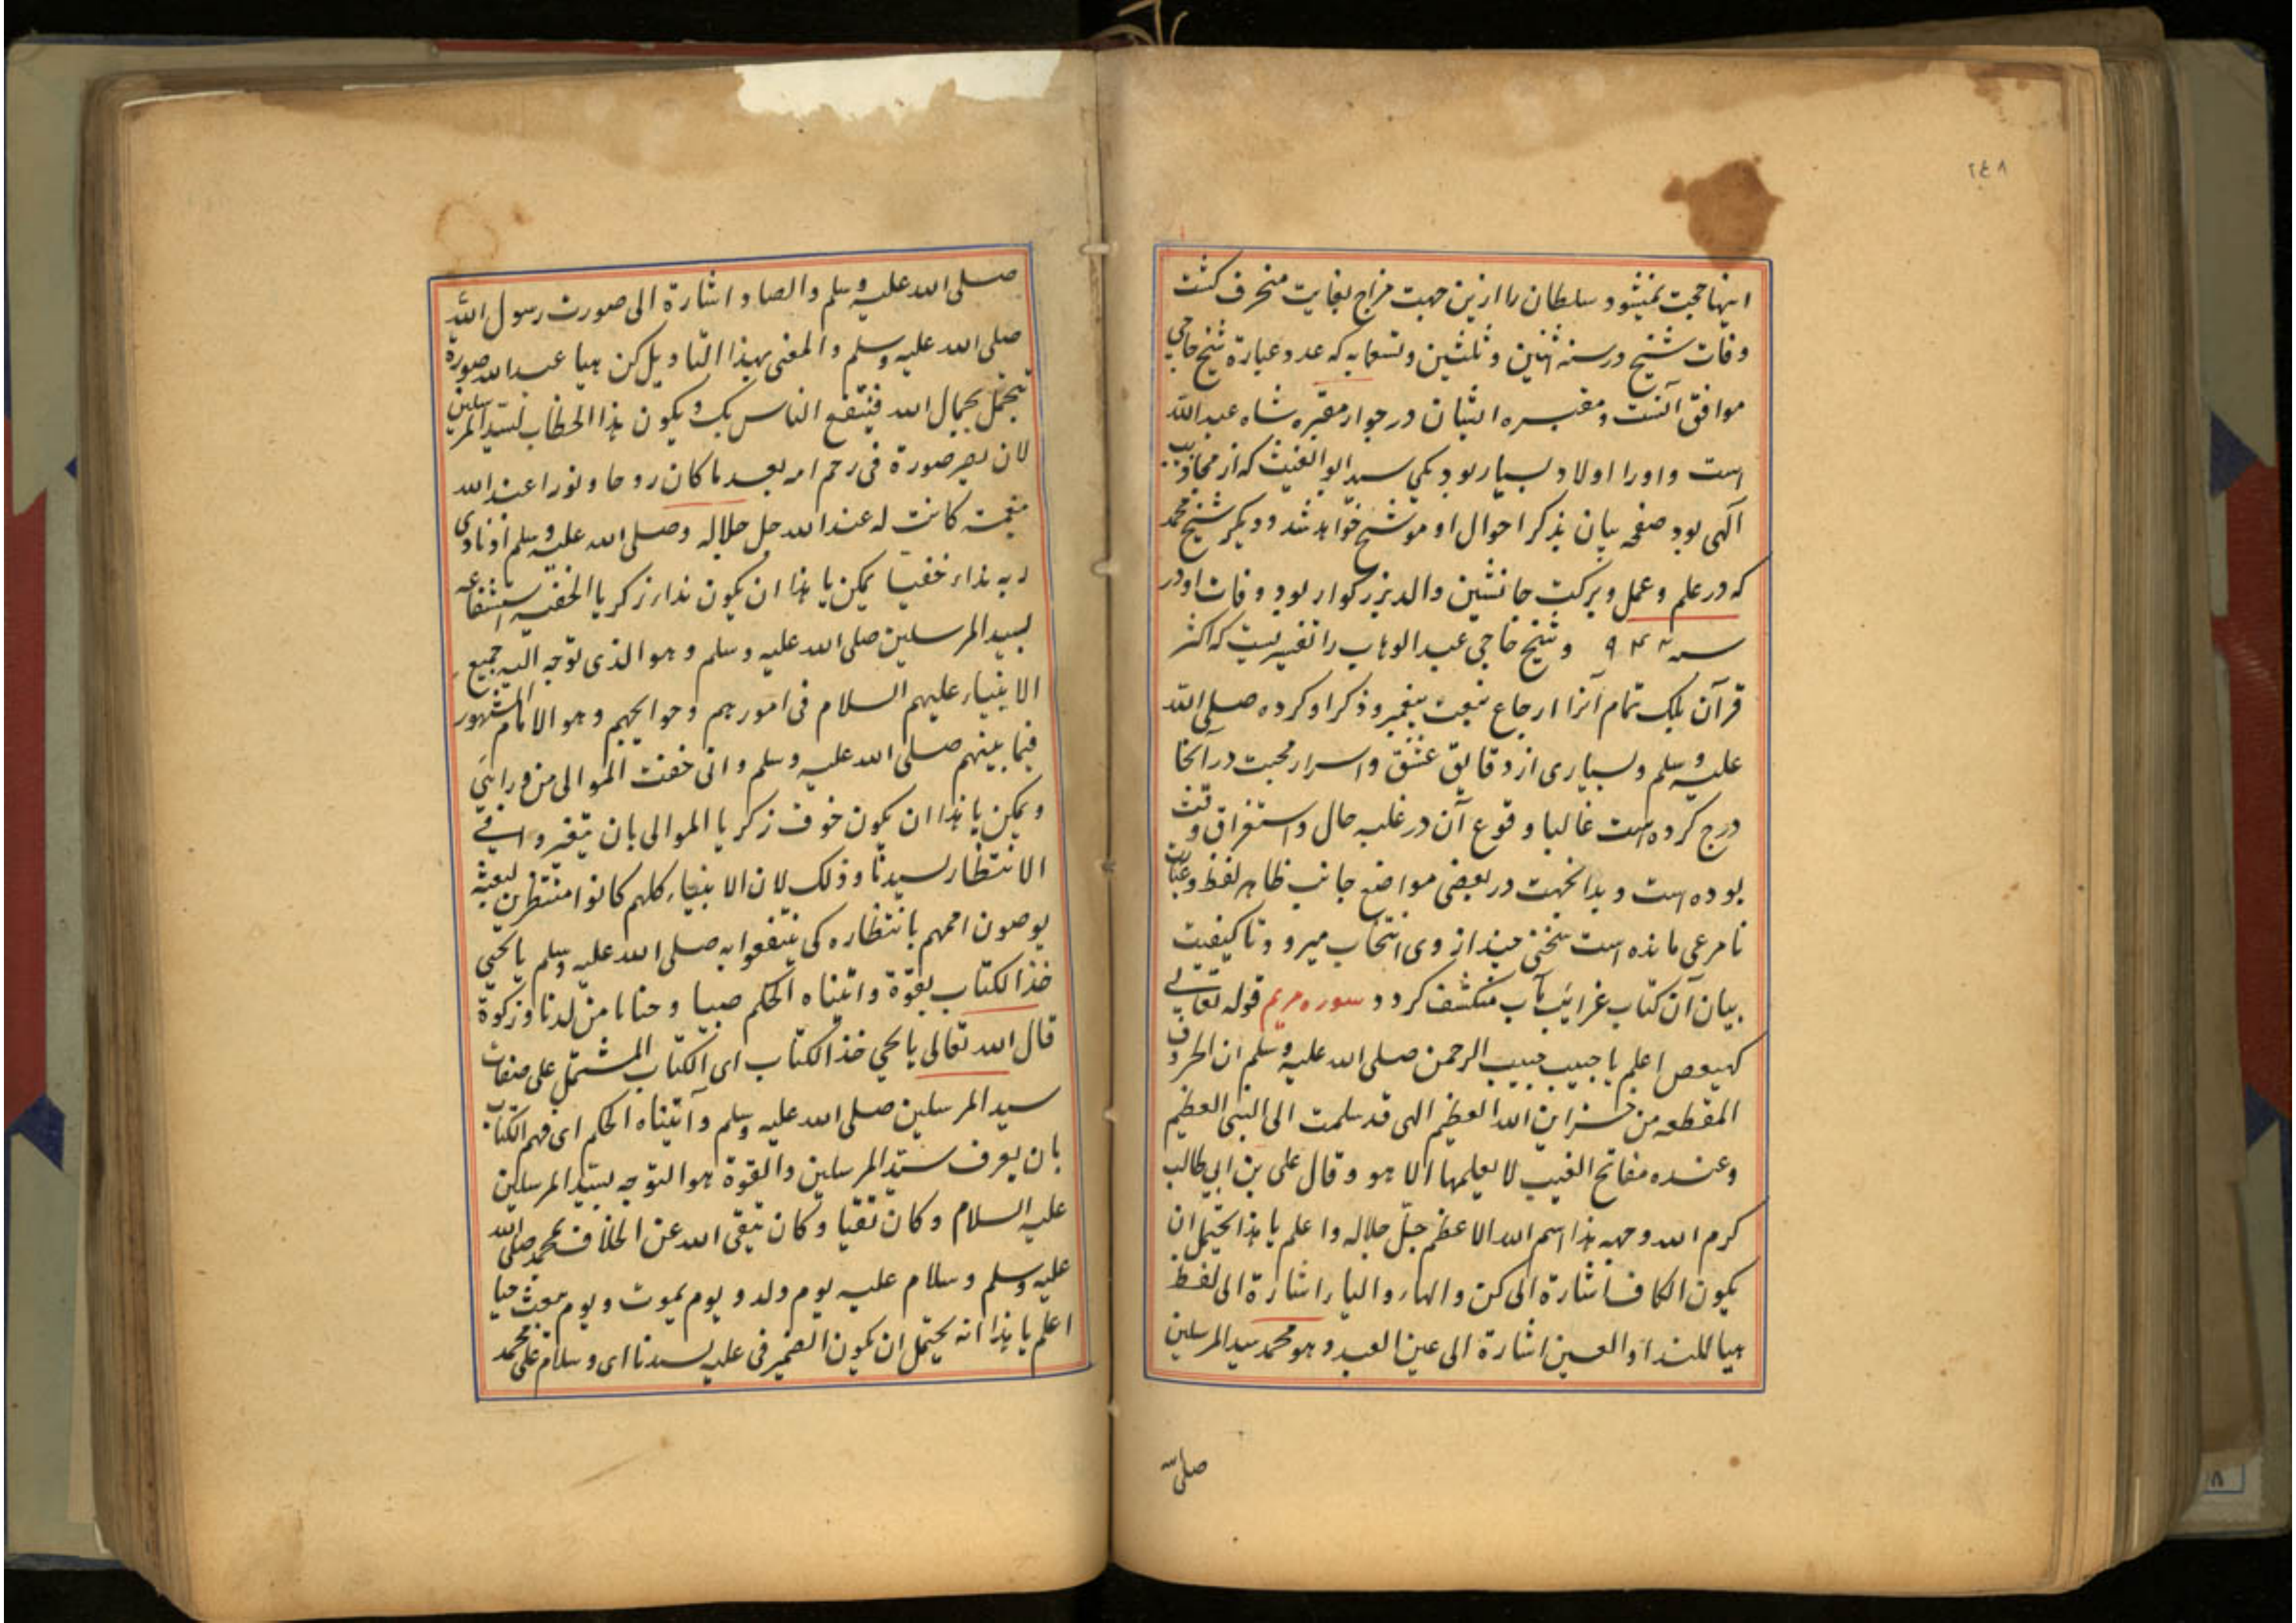 ۲٤۸
اینها حجت نمیشود سلطان را ازین جهت مزاج بغایت منحرف کشت
وفات شیخ در سنه اثنین و ثلثین و تسعمایه که عدد عبارة شیخ حاجی
موافق آنست و مقبره ایشان در جوار مقبره شاه عبد الله
است و اورا اولاد بسیار بود یکی سید ابو الغیث که از مجاذیب
الهی بود صفحه بیان بذکر احوال او موشح خواهد شد و دیکر شیخ محمد
که در علم و عمل و برکت جانشین والد بزرکوار بود وفات او در
سنه ۹۴۷ و شیخ حاجی عبد الوهاب را تفسیریست که اکثر
قرآن بلک تمام آنرا ارجاع بنعت پیغمبر و ذکر او کرده صلی الله
علیه وسلم و بسیاری از دقایق عشق و اسرار محبت در آنجا
درج کرده است غالبا وقوع آن در غلبه حال و استغراق وقت
بوده است و بدانجهت در بعضی مواضع جانب ظاهر لفظ و عبارت
نامرعی مانده است سخنی چند از وی انتخاب میرود تا کیفیت
بیان آن کتاب غرایب مآب منکشف کردد سوره مریم قوله تعالی
کهیعص اعلم یا حبیب حبیب الرحمن صلی الله علیه وسلم ان الحروف
المقطعه من خزاین الله العظیم الهی قد سلمت الی النبی العظیم
وعنده مفاتح الغیب لا یعلمها الا هو وقال علی بن ابی طالب
کرم الله وجهه هذا اسم الله الاعظم جل جلاله واعلم یا هذا یحتمل ان
یکون الکاف اشارة الی کن والهاء والیاء اشارة الی لفظ
هیا للندا والعین اشارة الی عین العبد وهو محمد سید المرسلین
صلی الله
صلی الله علیه وسلم والصاد اشارة الی صورت رسول الله
صلی الله علیه وسلم والمعنی بهذا التاویل کن هیا عبد الله صورة
تتجمل بجمال الله فینتفع الناس بک ویکون هذا الخطاب لسید المرسلین
لان یصر صورة فی رحم امه بعد ما کان روحا ونورا عند الله
کانت له عند الله جل جلاله وصلی الله علیه وسلم اذ نادی
ربه نداء خفیا یمکن یا هذا ان یکون نداء زکریا الخفیه استشفاعه
لسید المرسلین صلی الله علیه وسلم وهو الذی توجه الیه جمیع
الانبیاء علیهم السلام فی امورهم وحوایجهم وهو الامام المشهور
فیما بینهم صلی الله علیه وسلم وانی خفت الموالی من ورائی
ویمکن یا هذا ان یکون خوف زکریا الموالی بان یتغیروا فی
الانتظار لسیدنا وذلک لان الانبیاء کلهم کانوا منتظرین لبعثه
یوصون اممهم بانتظاره کی ینتفعوا به صلی الله علیه وسلم یا یحیی
خذ الکتاب بقوة واتیناه الحکم صبیا وحنانا من لدنا وزکوة
قال الله تعالی یا یحیی خذ الکتاب ای الکتاب المشتمل علی صفات
سید المرسلین صلی الله علیه وسلم وآتیناه الحکم ای فهم الکتاب
بان یعرف سید المرسلین والقوة هو التوجه بسید المرسلین
علیه السلام وکان تقیا وکان یتقی الله عن الخلاف محمد صلی الله
علیه وسلم وسلام علیه یوم ولد ویوم یموت ویوم یبعث حیا
اعلم یا هذا انه یحتمل ان یکون الضمیر فی علیه لسیدنا ای وسلام علی محمد
۸